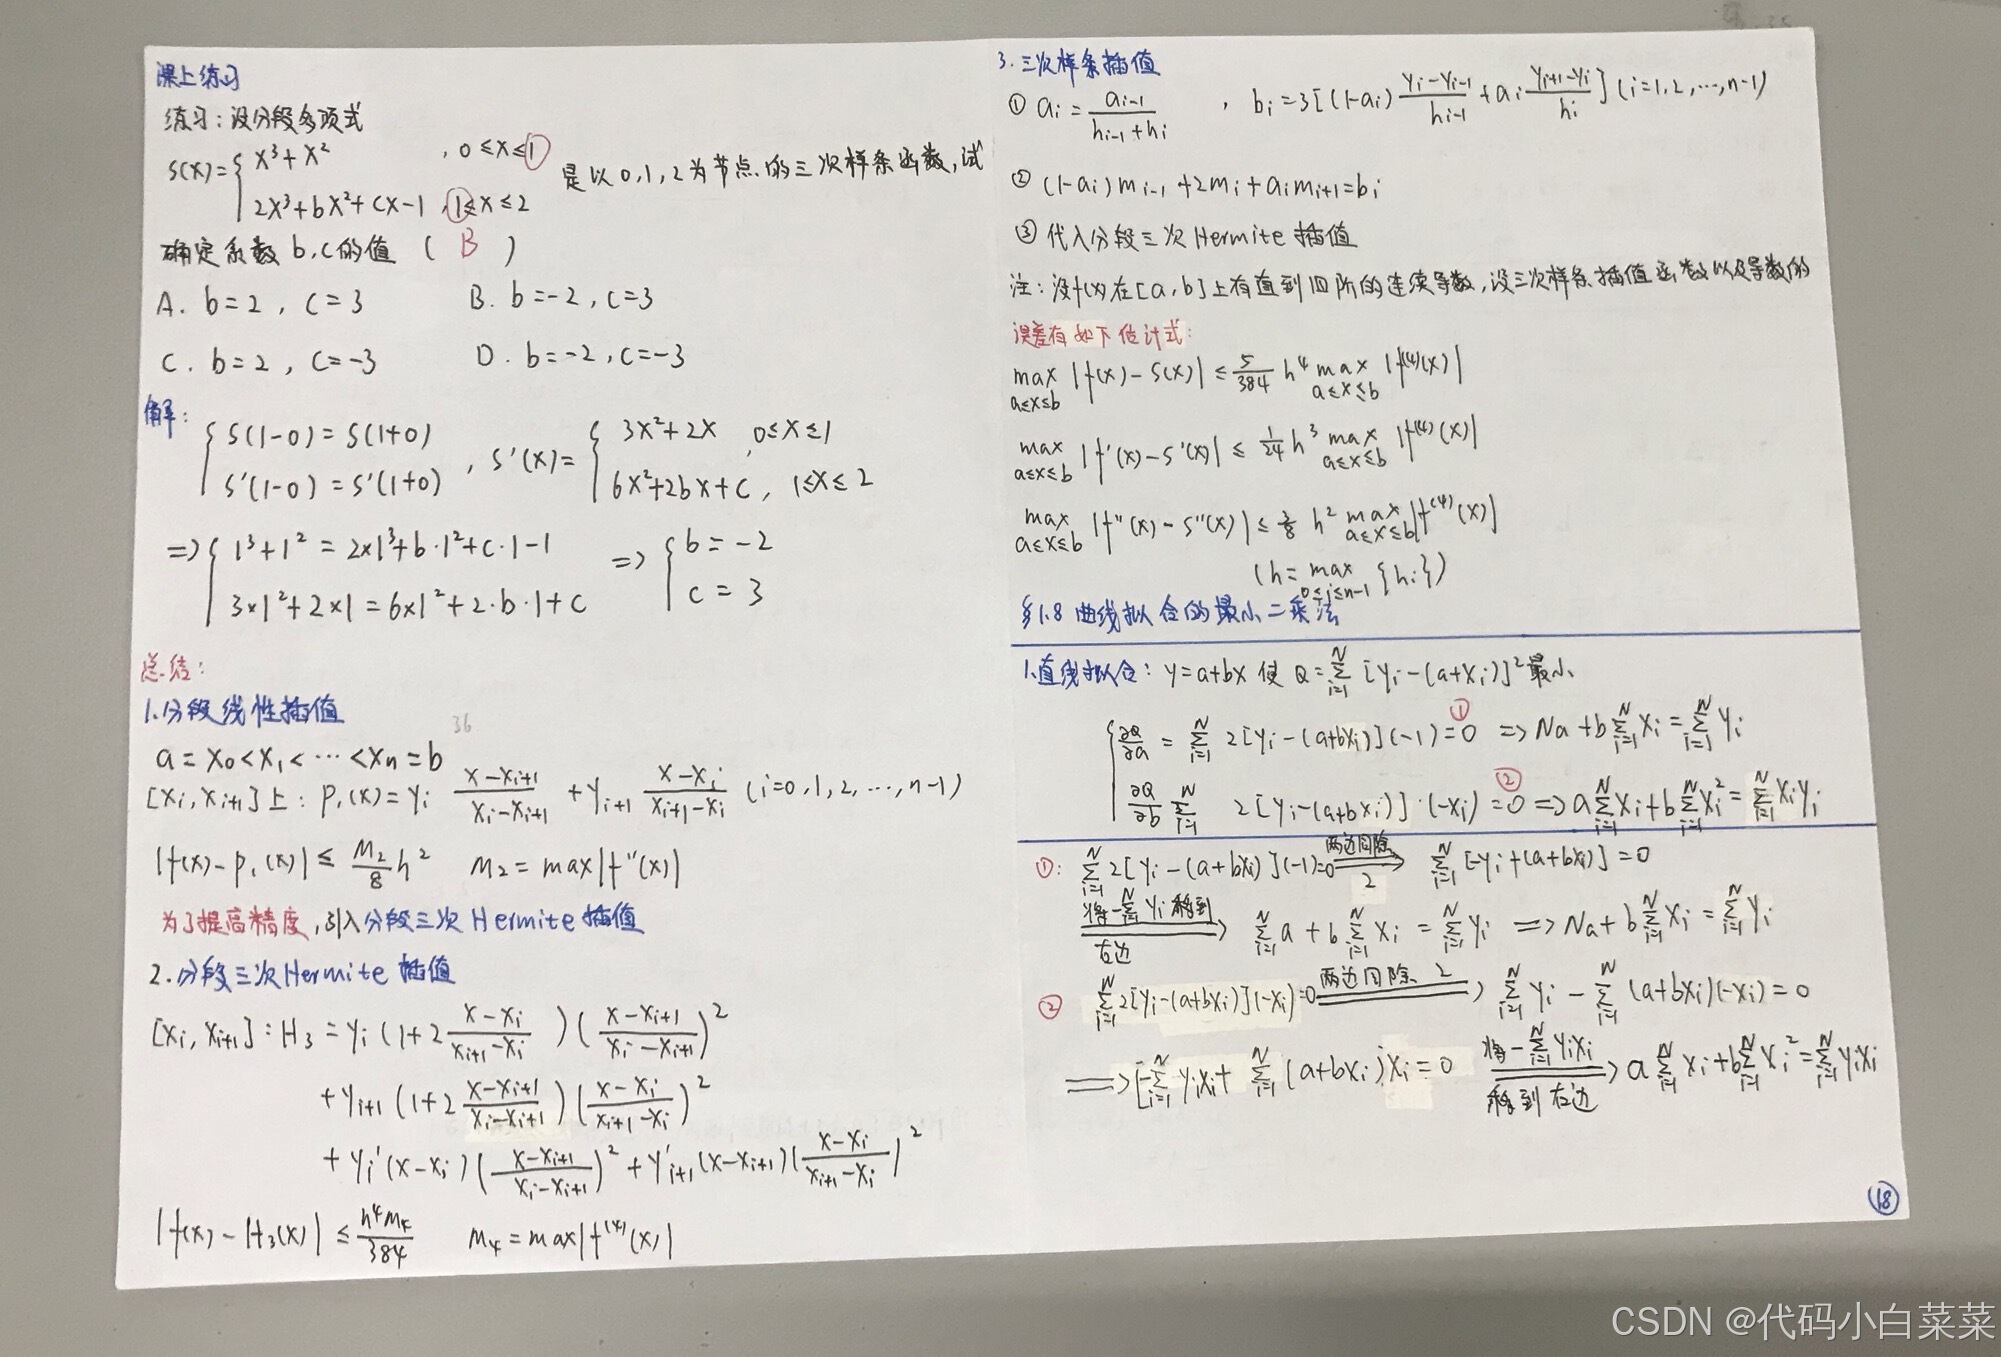 课上练习
练习：设分段多项式
S(x)={ x³+x² , 0≤x≤1
2x³+bx²+cx-1 , 1≤x≤2
是以0,1,2为节点的三次样条函数,试
确定系数b,c的值 ( B )
A. b=2, c=3 B. b=-2, c=3
C. b=2, c=-3 D. b=-2, c=-3
解:
{ S(1-0)=S(1+0)
S'(1-0)=S'(1+0) , S'(x)= { 3x²+2x , 0≤x≤1
6x²+2bx+c, 1≤x≤2
=> { 1³+1²=2×1³+b·1²+c·1-1
3×1²+2×1=6×1²+2·b·1+c => { b=-2
c=3
总结:
1.分段线性插值
36
a=x₀<x₁<…<xn=b
[xi, xi+1]上: P₁(x)=yi (x-xi+1)/(xi-xi+1) + yi+1 (x-xi)/(xi+1-xi) (i=0,1,2,…,n-1)
|f(x)-P₁(x)| ≤ M₂/8 h² M₂=max|f''(x)|
为了提高精度,引入分段三次Hermite插值
2.分段三次Hermite插值
[xi, xi+1]: H₃=yi(1+2 (x-xi)/(xi+1-xi))((x-xi+1)/(xi-xi+1))²
+yi+1(1+2 (x-xi+1)/(xi-xi+1))((x-xi)/(xi+1-xi))²
+yi'(x-xi)((x-xi+1)/(xi-xi+1))²+y'i+1(x-xi+1)((x-xi)/(xi+1-xi))²
|f(x)-H₃(x)| ≤ h⁴M₄/384 M₄=max|f⁽⁴⁾(x)|
3.三次样条插值
① ai=ai-1/(hi-1+hi) , bi=3[(1-ai)(yi-yi-1)/hi-1+ai(yi+1-yi)/hi] (i=1,2,…,n-1)
② (1-ai)mi-1+2mi+aimi+1=bi
③ 代入分段三次Hermite插值
注: 设f(x)在[a,b]上有直到四阶的连续导数,设三次样条插值函数以及导数的
误差有如下估计式:
max a≤x≤b |f(x)-S(x)| ≤ 5/384 h⁴ max a≤x≤b |f⁽⁴⁾(x)|
max a≤x≤b |f'(x)-S'(x)| ≤ 1/24 h³ max a≤x≤b |f⁽⁴⁾(x)|
max a≤x≤b |f''(x)-S''(x)| ≤ 3/8 h² max a≤x≤b |f⁽⁴⁾(x)|
(h=max 0≤i≤n-1 {hi})
§1.8 曲线拟合的最小二乘法
1.直线拟合: y=a+bx 使 Q=Σ(i=1,N) [yi-(a+xi)]² 最小
{ ∂Q/∂a=Σ(i=1,N) 2[yi-(a+bxi)](-1)=0 ① => Na+bΣ(i=1,N) xi=Σ(i=1,N) yi
∂Q/∂b Σ(i=1,N) 2[yi-(a+bxi)]·(-xi)=0 ② => aΣ(i=1,N) xi+bΣ(i=1,N) xi²=Σ(i=1,N) xiyi
①: Σ(i=1,N) 2[yi-(a+bxi)](-1)=0 两边同除2 => Σ(i=1,N) [-yi+(a+bxi)]=0
将-Σ(i=1,N) yi移到右边 => Σ(i=1,N) a+bΣ(i=1,N) xi=Σ(i=1,N) yi => Na+bΣ(i=1,N) xi=Σ(i=1,N) yi
② Σ(i=1,N) 2[yi-(a+bxi)](-xi)=0 两边同除2 => Σ(i=1,N) yi-Σ(i=1,N) (a+bxi)(-xi)=0
=> [-Σ(i=1,N) yixi+Σ(i=1,N) (a+bxi)xi=0 将-Σ(i=1,N) yixi移到右边 => aΣ(i=1,N) xi+bΣ(i=1,N) xi²=Σ(i=1,N) yixi
18
CSDN @代码小白菜菜